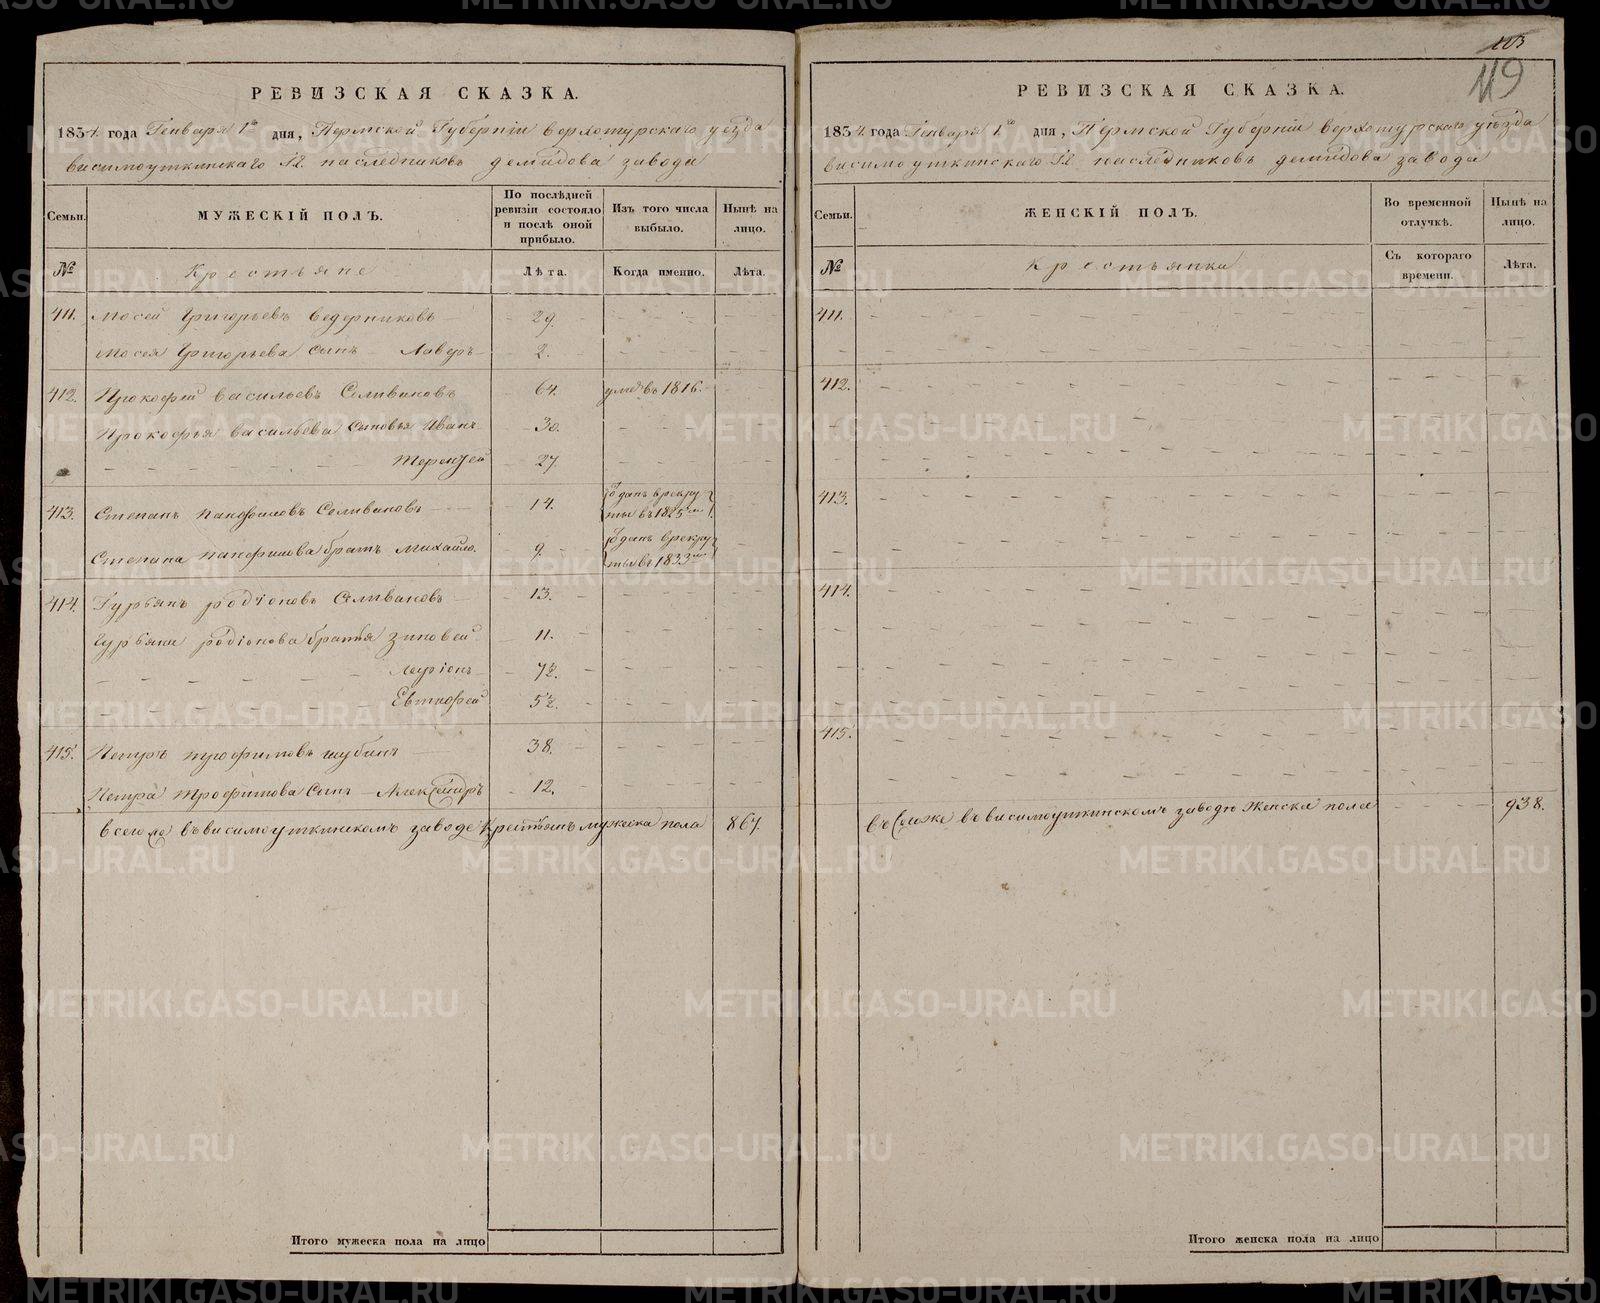 РЕВИЗСКАЯ СКАЗКА.
1834. года Генваря 1го дня, Пермской Губерніи верхотурскаго уезда
висимоуткинскаго Гг. наследниковъ демидова завода
Семьи. МУЖЕСКІЙ ПОЛЪ. По послѣдней ревизіи состояло и послѣ оной прибыло. Изъ того числа выбыло. Нынѣ на лицо.
№ Крестьяне Лѣта. Когда именно. Лѣта.
411. Мосей Григорьевъ ведерниковъ 29.
Мосея Григорьева сынъ Лаверъ 2.
412. Прокофій васильевъ Селивановъ 64. умре въ 1816.
Прокофья васильева сыновья Иванъ 30.
Терентей 27
413. Степанъ панфиловъ Селивановъ 14. Отданъ врекру
ты въ 1825мъ
Степана панфилова братъ михайло. 9. Отданъ врекру
ты въ 1833мъ
414. Гурьянъ родіоновъ Селивановъ 13.
Гурьяна родіонова братья зиновей 11.
Ларіонъ
Евтифей
415. Петръ трофимовъ шубинъ 38.
Петра трофимова сынъ Александръ 12.
всего въ висимоуткинскомъ заводе крестьянъ мужеска пола 867.
Итого мужеска пола на лицо
113
119
РЕВИЗСКАЯ СКАЗКА.
1834. года Генваря 1го дня, Пермской Губерніи верхотурскаго уѣзда
висимоуткинскаго Гг. наследниковъ демидова завода
Семьи. ЖЕНСКІЙ ПОЛЪ. Во временной отлучкѣ. Нынѣ на лицо.
№ Крестьянки Съ котораго времени. Лѣта.
411.
412.
413.
414.
415.
въ висимоуткинскомъ заводѣ женска пола 938.
Итого женска пола на лицо
METRIKI.GASO-URAL.RU